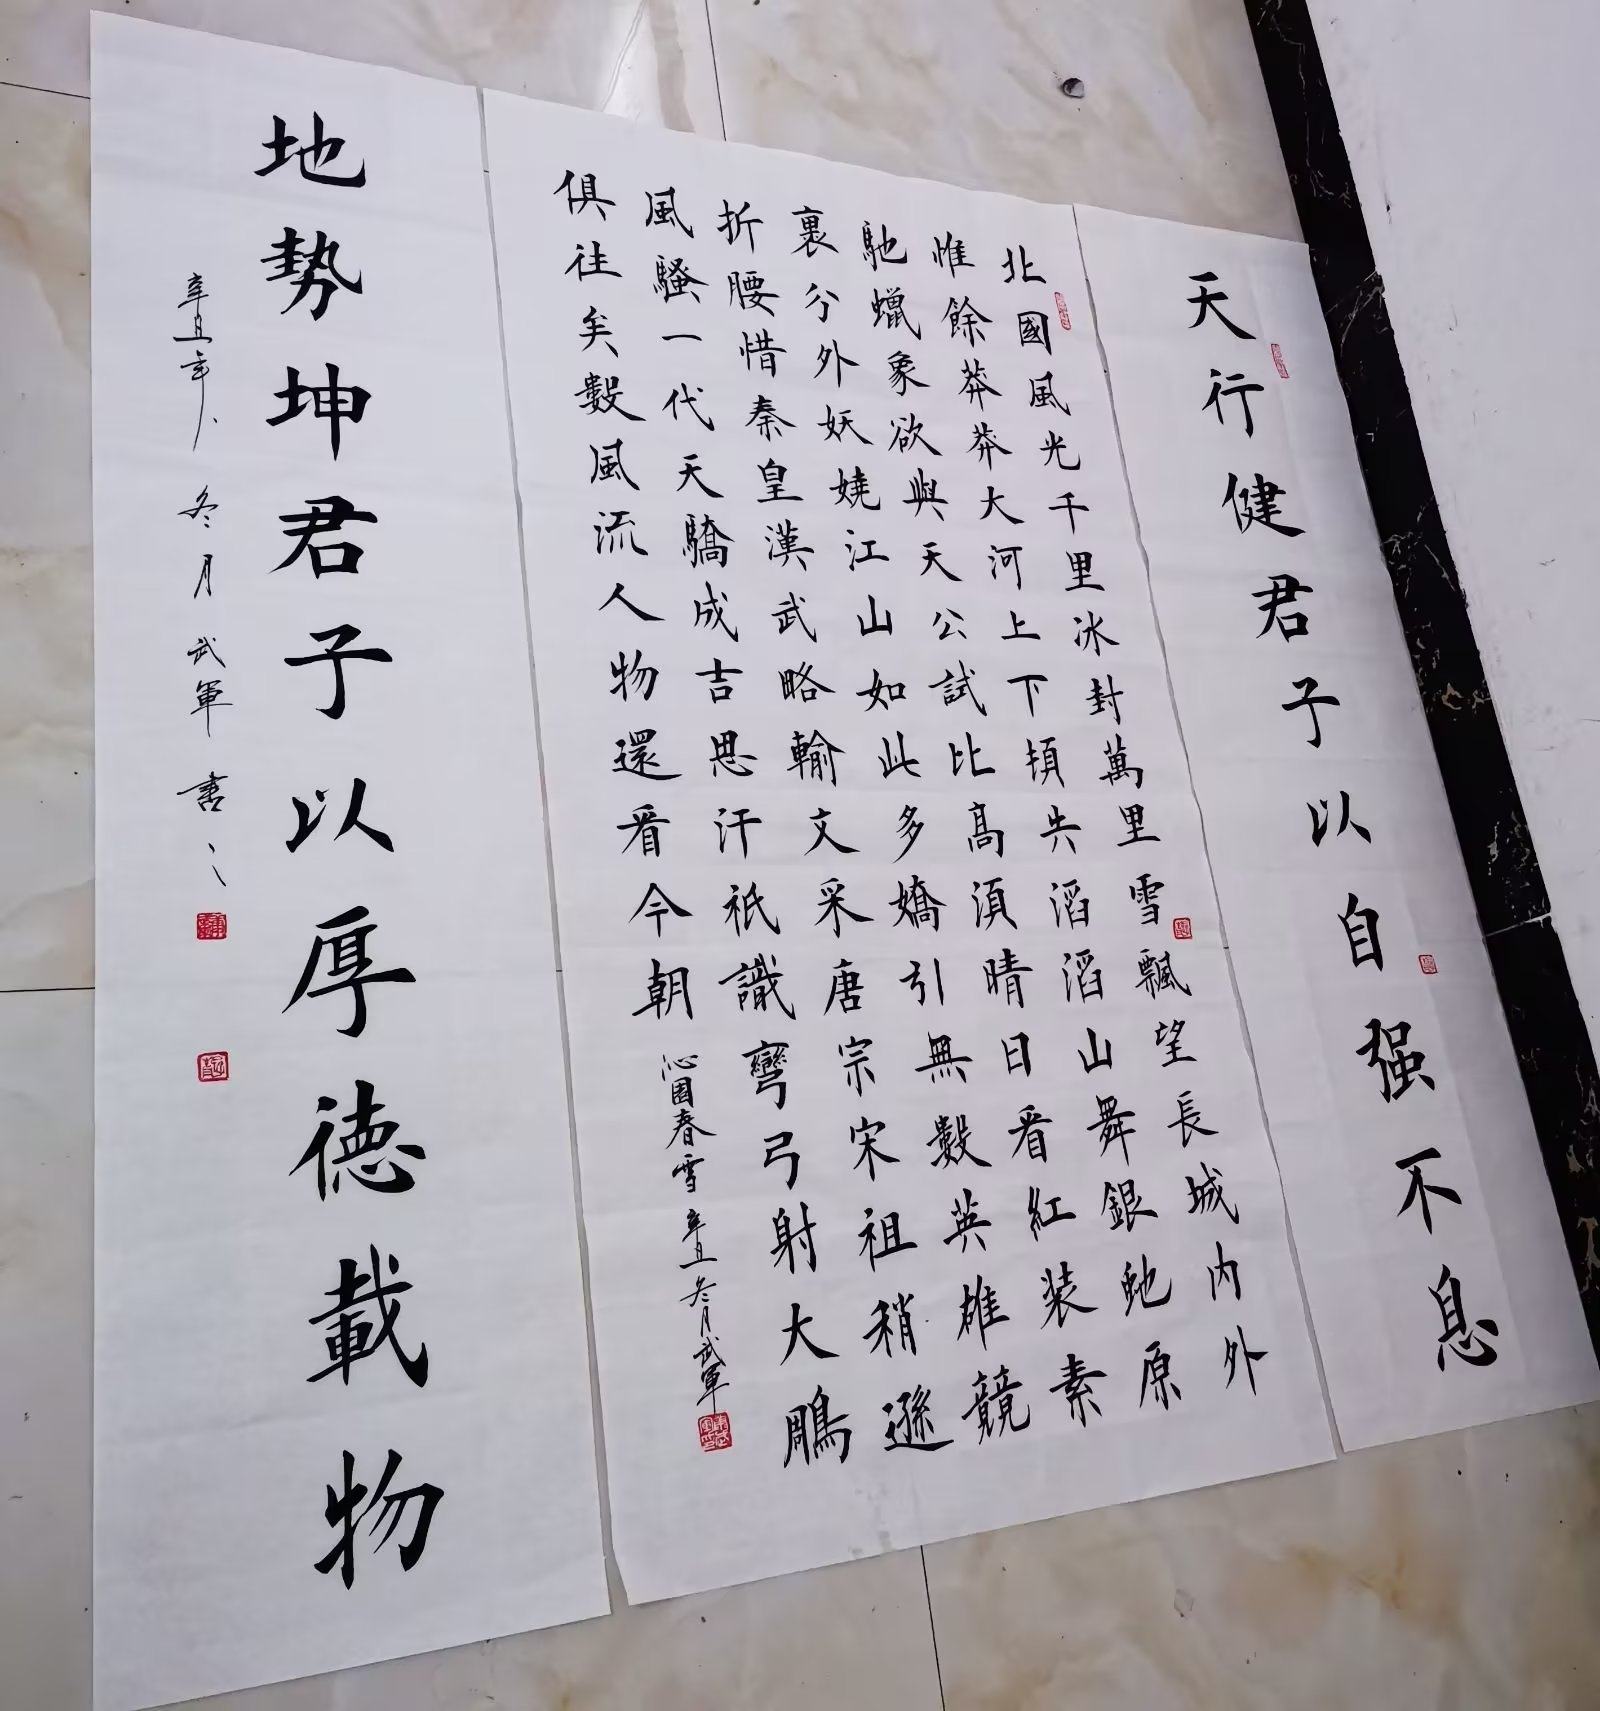 天行健君子以自强不息
北國風光千里冰封萬里雪飄望長城内外
惟餘莽莽大河上下頓失滔滔山舞銀蛇原
馳蠟象欲與天公試比高須晴日看紅装素
裹分外妖嬈江山如此多嬌引無數英雄競
折腰惜秦皇漢武略輸文采唐宗宋祖稍遜
風騷一代天驕成吉思汗祇識彎弓射大鵰
俱往矣數風流人物還看今朝 沁園春雪 辛丑冬月武軍
地勢坤君子以厚德載物
辛丑年 冬月 武軍書